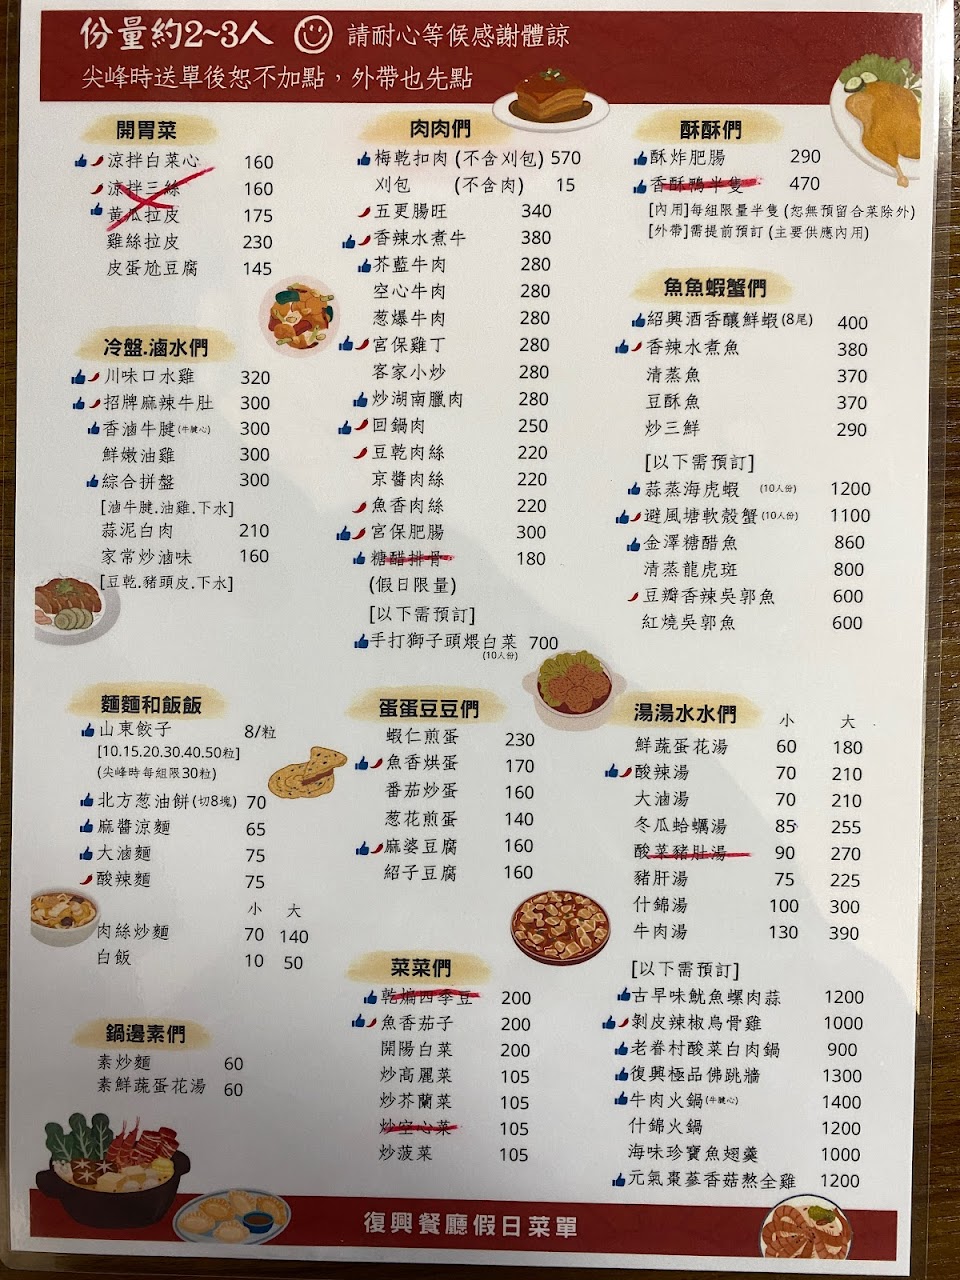 份量約2~3人 請耐心等候感謝體諒
尖峰時送單後恕不加點，外帶也先點
開胃菜
涼拌白菜心 160
涼拌三絲 160
黃瓜拉皮 175
雞絲拉皮 230
皮蛋尬豆腐 145
冷盤.滷水們
川味口水雞 320
招牌麻辣牛肚 300
香滷牛腱(牛腱心) 300
鮮嫩油雞 300
綜合拼盤 300
[滷牛腱.油雞.下水]
蒜泥白肉 210
家常炒滷味 160
[豆乾.豬頭皮.下水]
麵麵和飯飯
山東餃子 8/粒
[10.15.20.30.40.50粒]
(尖峰時每組限30粒)
北方葱油餅(切8塊) 70
麻醬涼麵 65
大滷麵 75
酸辣麵 75
小 大
肉絲炒麵 70 140
白飯 10 50
鍋邊素們
素炒麵 60
素鮮蔬蛋花湯 60
肉肉們
梅乾扣肉(不含刈包) 570
刈包 (不含肉) 15
五更腸旺 340
香辣水煮牛 380
芥藍牛肉 280
空心牛肉 280
葱爆牛肉 280
宮保雞丁 280
客家小炒 280
炒湖南臘肉 280
回鍋肉 250
豆乾肉絲 220
京醬肉絲 220
魚香肉絲 220
宮保肥腸 300
糖醋排骨 180
(假日限量)
[以下需預訂]
手打獅子頭煨白菜 700
(10人份)
蛋蛋豆豆們
蝦仁煎蛋 230
魚香烘蛋 170
番茄炒蛋 160
葱花煎蛋 140
麻婆豆腐 160
紹子豆腐 160
菜菜們
乾煸四季豆 200
魚香茄子 200
開陽白菜 200
炒高麗菜 105
炒芥蘭菜 105
炒空心菜 105
炒菠菜 105
酥酥們
酥炸肥腸 290
香酥鴨半隻 470
[內用]每組限量半隻(恕無預留合菜除外)
[外帶]需提前預訂(主要供應內用)
魚魚蝦蟹們
紹興酒香釀鮮蝦(8尾) 400
香辣水煮魚 380
清蒸魚 370
豆酥魚 370
炒三鮮 290
[以下需預訂]
蒜蒸海虎蝦 (10人份) 1200
避風塘軟殼蟹(10人份) 1100
金澤糖醋魚 860
清蒸龍虎斑 800
豆瓣香辣吳郭魚 600
紅燒吳郭魚 600
湯湯水水們 小 大
鮮蔬蛋花湯 60 180
酸辣湯 70 210
大滷湯 70 210
冬瓜蛤蠣湯 85 255
酸菜豬肚湯 90 270
豬肝湯 75 225
什錦湯 100 300
牛肉湯 130 390
[以下需預訂]
古早味魷魚螺肉蒜 1200
剝皮辣椒烏骨雞 1000
老眷村酸菜白肉鍋 900
復興極品佛跳牆 1300
牛肉火鍋(牛腱心) 1400
什錦火鍋 1200
海味珍寶魚翅羹 1000
元氣棗蔘香菇熬全雞 1200
復興餐廳假日菜單